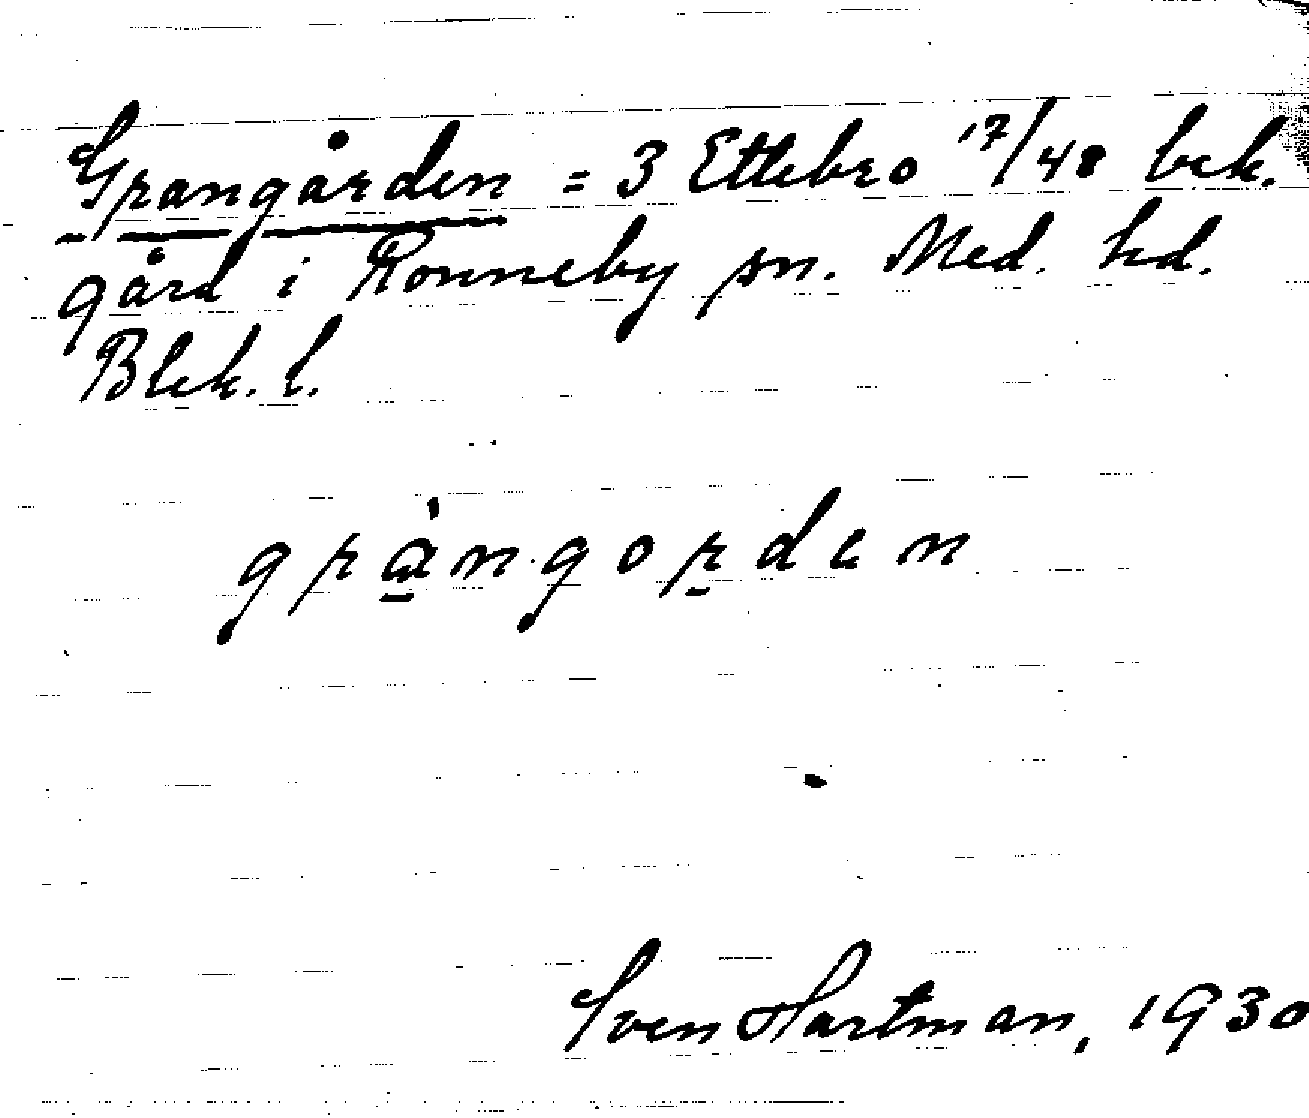 Grangården = 3 Ettebro 17/48 bek.
gård i Ronneby sn. Med. hd.
Blek. l.
grà̱n·gor̠den
Sven Hartman, 1930